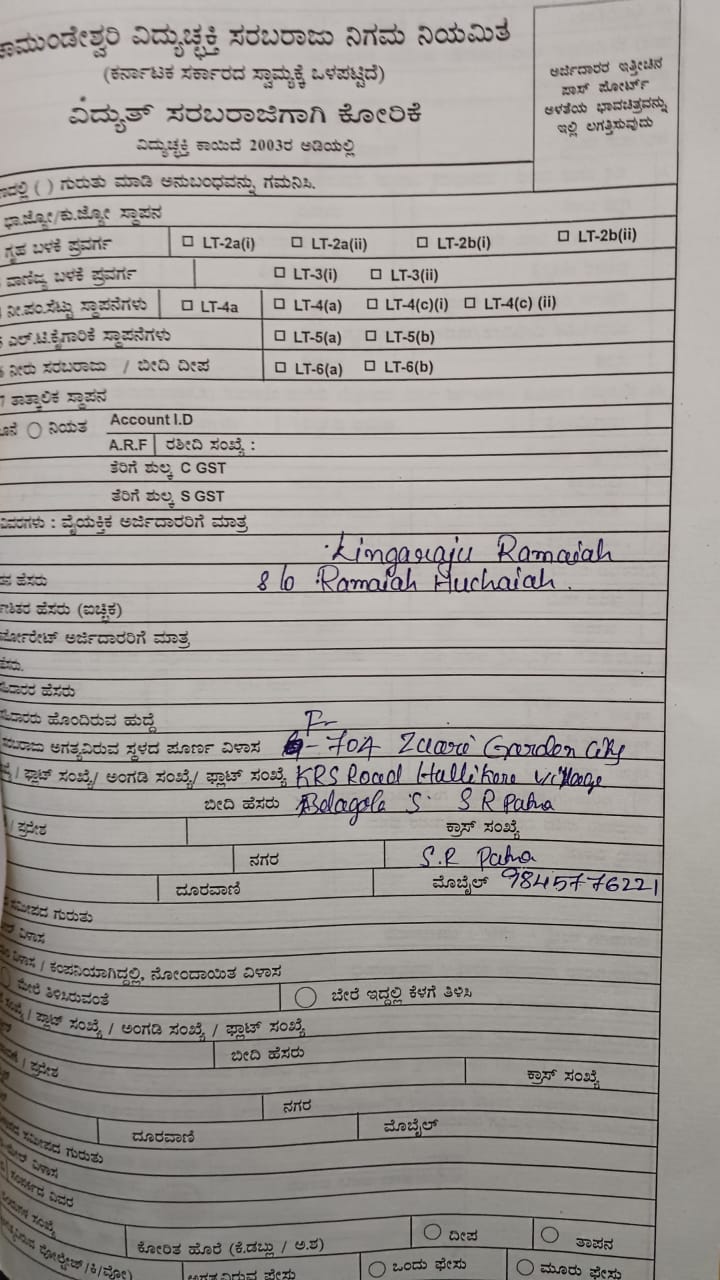 ಚಾಮುಂಡೇಶ್ವರಿ ವಿದ್ಯುಚ್ಛಕ್ತಿ ಸರಬರಾಜು ನಿಗಮ ನಿಯಮಿತ
(ಕರ್ನಾಟಕ ಸರ್ಕಾರದ ಸ್ವಾಮ್ಯಕ್ಕೆ ಒಳಪಟ್ಟಿದೆ)
ವಿದ್ಯುತ್ ಸರಬರಾಜಿಗಾಗಿ ಕೋರಿಕೆ
ವಿದ್ಯುಚ್ಛಕ್ತಿ ಕಾಯಿದೆ 2003ರ ಅಡಿಯಲ್ಲಿ
ಅರ್ಜಿದಾರರ ಇತ್ತೀಚಿನ
ಪಾಸ್ ಪೋರ್ಟ್
ಅಳತೆಯ ಭಾವಚಿತ್ರವನ್ನು
ಇಲ್ಲಿ ಲಗತ್ತಿಸುವುದು
( ) ಗುರುತು ಮಾಡಿ ಅನುಬಂಧವನ್ನು ಗಮನಿಸಿ.
ಭಾ.ಜ್ಯೋ/ಕು.ಜ್ಯೋ ಸ್ಥಾಪನ
ಗೃಹ ಬಳಕೆ ಪ್ರವರ್ಗ ☐ LT-2a(i) ☐ LT-2a(ii) ☐ LT-2b(i) ☐ LT-2b(ii)
ವಾಣಿಜ್ಯ ಬಳಕೆ ಪ್ರವರ್ಗ ☐ LT-3(i) ☐ LT-3(ii)
ನೀ.ಪಂ.ಸೆಟ್ಟು ಸ್ಥಾಪನೆಗಳು ☐ LT-4a ☐ LT-4(a) ☐ LT-4(c)(i) ☐ LT-4(c) (ii)
ಎಲ್.ಟಿ.ಕೈಗಾರಿಕೆ ಸ್ಥಾಪನೆಗಳು ☐ LT-5(a) ☐ LT-5(b)
ನೀರು ಸರಬರಾಜು / ಬೀದಿ ದೀಪ ☐ LT-6(a) ☐ LT-6(b)
7 ತಾತ್ಕಾಲಿಕ ಸ್ಥಾಪನ
ನಿಯತ Account I.D
A.R.F ರಶೀದಿ ಸಂಖ್ಯೆ :
ತೆರಿಗೆ ಶುಲ್ಕ C GST
ತೆರಿಗೆ ಶುಲ್ಕ S GST
ವಿವರಗಳು : ವೈಯಕ್ತಿಕ ಅರ್ಜಿದಾರರಿಗೆ ಮಾತ್ರ
Lingaraju Ramaiah
ಹೆಸರು S/o Ramaiah Huchaiah.
ಹೆಸರು (ಐಚ್ಛಿಕ)
ಅರ್ಜಿದಾರರಿಗೆ ಮಾತ್ರ
ಹೆಸರು.
ಹೆಸರು
ಹೊಂದಿರುವ ಹುದ್ದೆ
ಅಗತ್ಯವಿರುವ ಸ್ಥಳದ ಪೂರ್ಣ ವಿಳಾಸ F-704 Zuari Garden City
/ ಫ್ಲಾಟ್ ಸಂಖ್ಯೆ/ ಅಂಗಡಿ ಸಂಖ್ಯೆ/ ಪ್ಲಾಟ್ ಸಂಖ್ಯೆ KRS Road Hallikere village
ಬೀದಿ ಹೆಸರು Belagola S R Patna
/ ಪ್ರದೇಶ ಕ್ರಾಸ್ ಸಂಖ್ಯೆ
ನಗರ S.R Patna
ದೂರವಾಣಿ ಮೊಬೈಲ್ 9845776221
ಸಮೀಪದ ಗುರುತು
ವಿಳಾಸ
ವಿಳಾಸ / ಕಂಪನಿಯಾಗಿದ್ದಲ್ಲಿ, ನೋಂದಾಯಿತ ವಿಳಾಸ
ಮೇಲೆ ತಿಳಿಸಿರುವಂತೆ ಬೇರೆ ಇದ್ದಲ್ಲಿ ಕೆಳಗೆ ತಿಳಿಸಿ
ಸಂಖ್ಯೆ / ಪ್ಲಾಟ್ ಸಂಖ್ಯೆ / ಅಂಗಡಿ ಸಂಖ್ಯೆ / ಫ್ಲಾಟ್ ಸಂಖ್ಯೆ
ಬೀದಿ ಹೆಸರು
/ ಪ್ರದೇಶ ಕ್ರಾಸ್ ಸಂಖ್ಯೆ
ನಗರ
ದೂರವಾಣಿ ಮೊಬೈಲ್
ಸಮೀಪದ ಗುರುತು
ವಿಳಾಸ
ಸಂಪರ್ಕದ ವಿವರ
ಸಂಖ್ಯೆ ಕೋರಿತ ಹೊರೆ (ಕೆ.ಡಬ್ಲು / ಅ.ಶ) ದೀಪ ತಾಪನ
ಅಗತ್ಯವಿರುವ ಫೇಸು ಒಂದು ಫೇಸು ಮೂರು ಫೇಸು